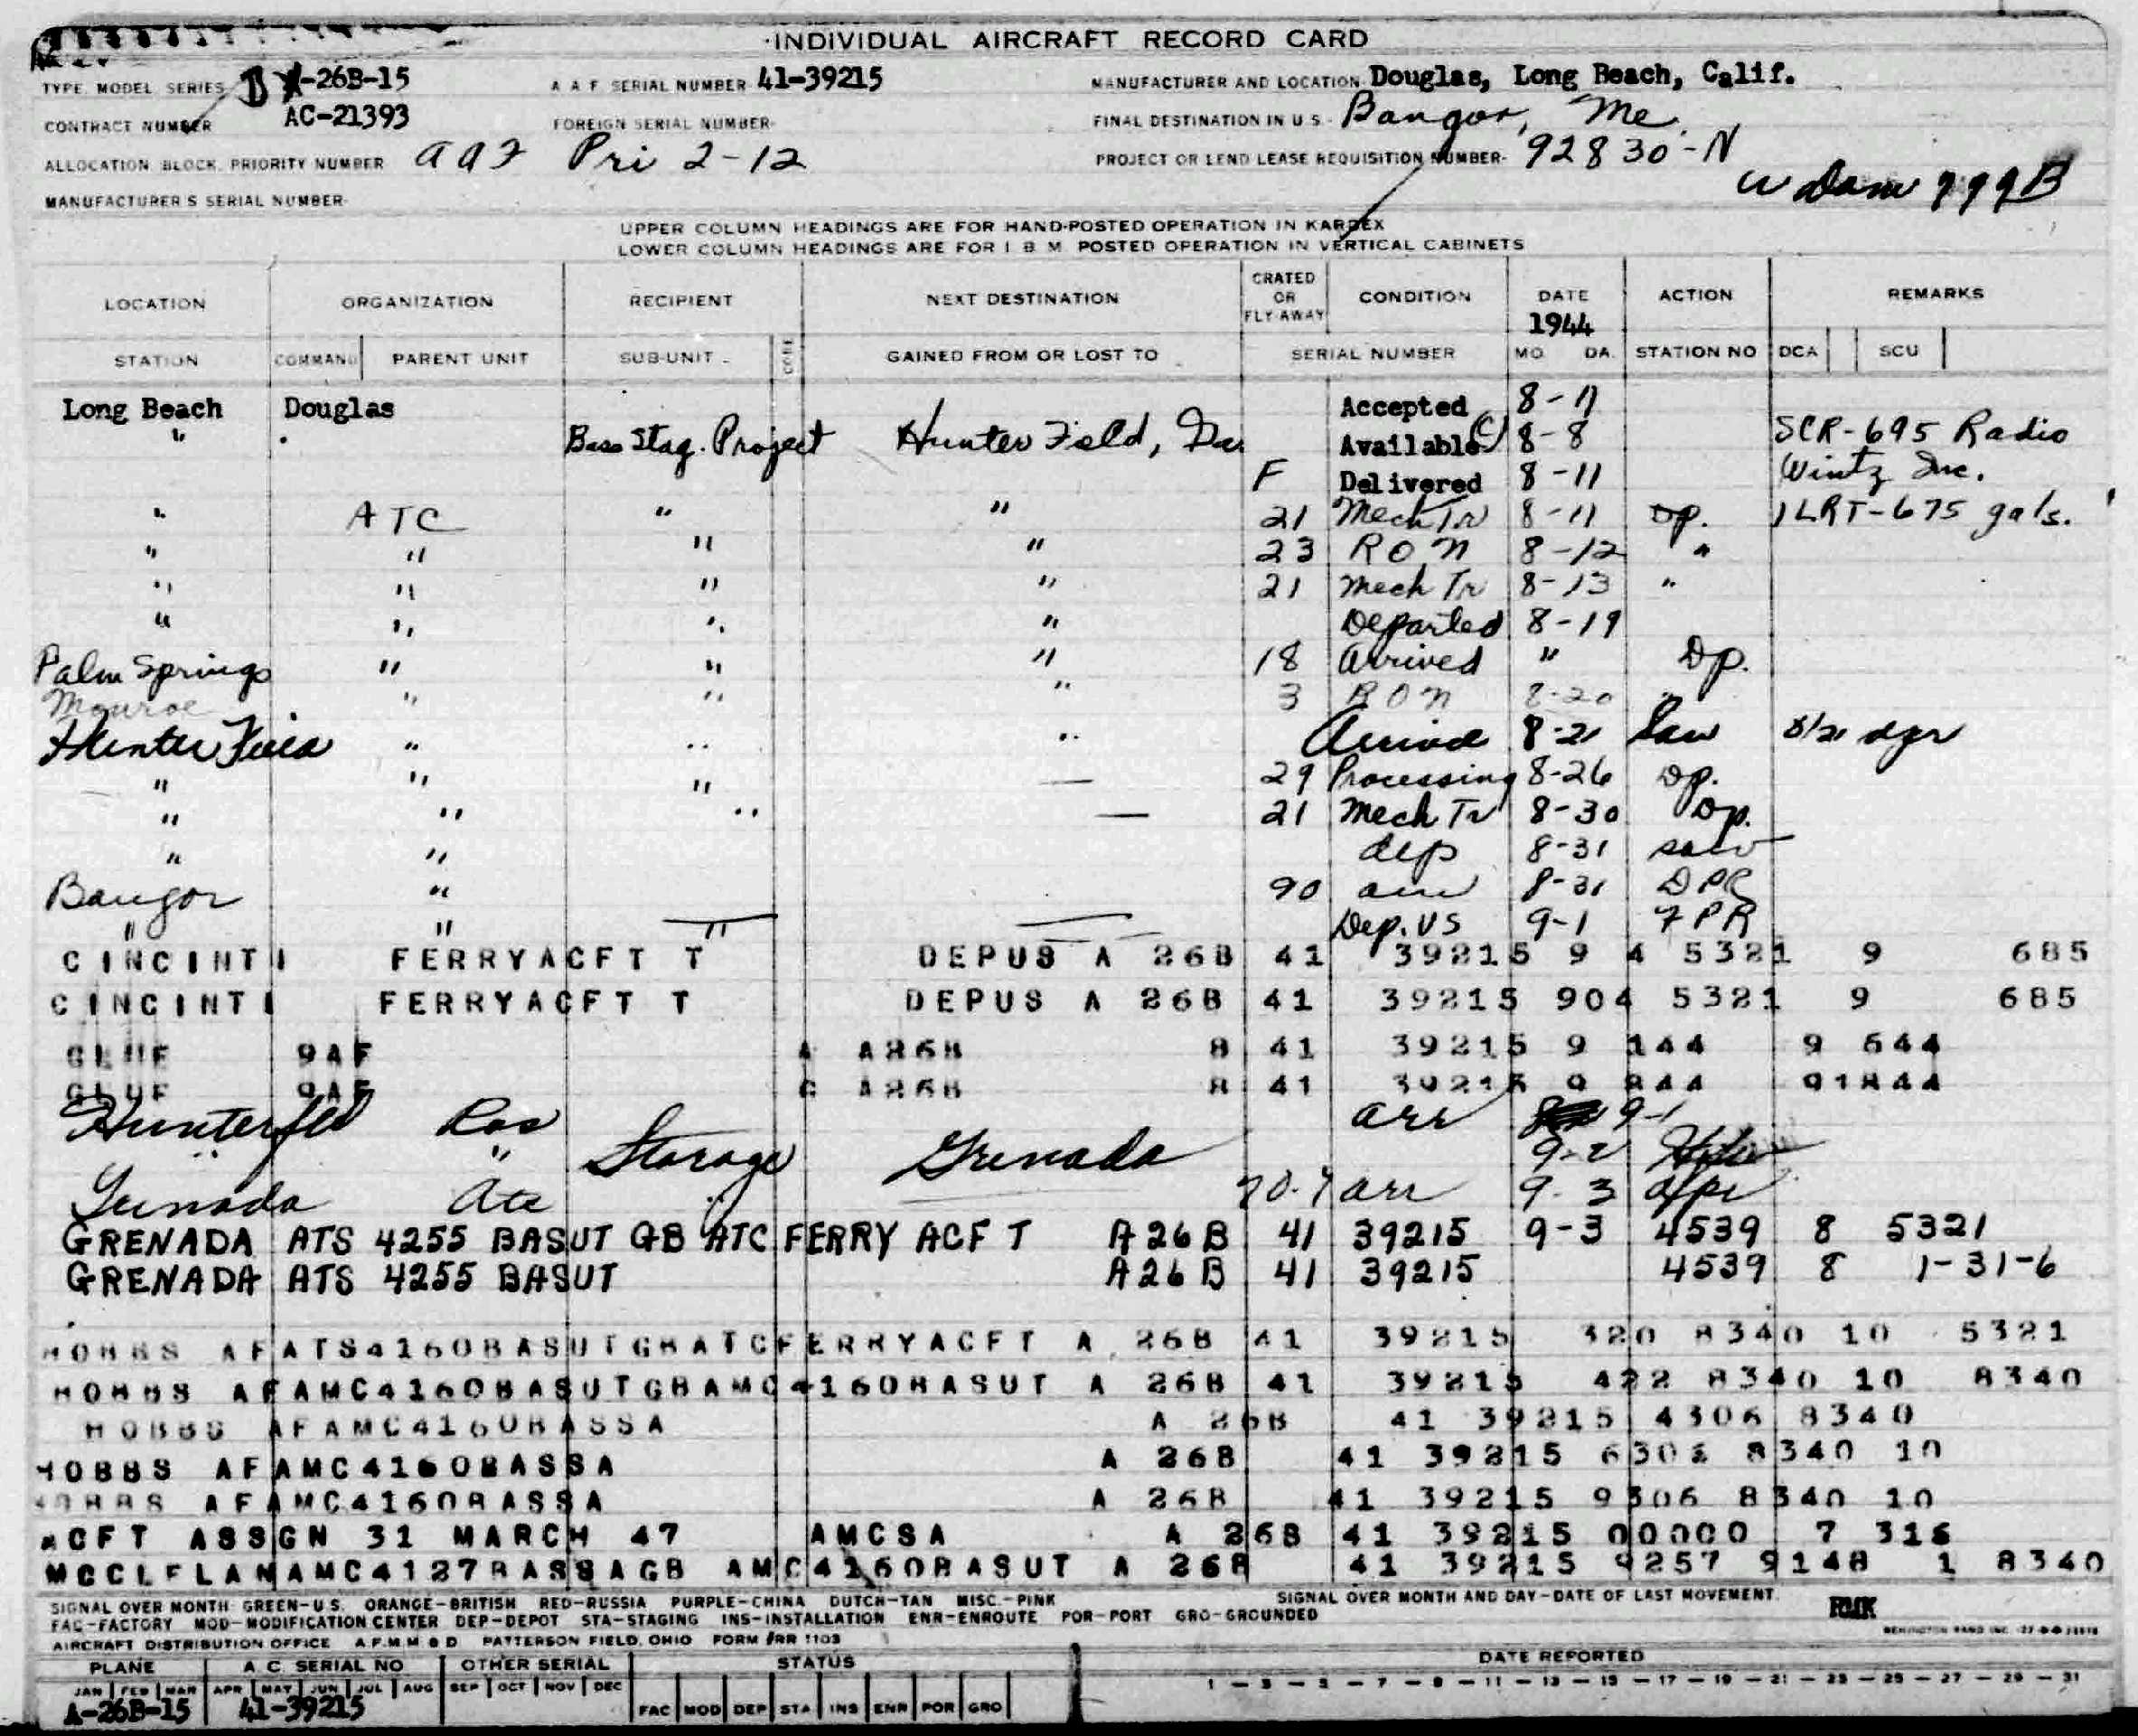 INDIVIDUAL AIRCRAFT RECORD CARD
TYPE, MODEL, SERIES B A-26B-15 A A F SERIAL NUMBER 41-39215 MANUFACTURER AND LOCATION Douglas, Long Beach, Calif.
CONTRACT NUMBER AC-21393 FOREIGN SERIAL NUMBER- FINAL DESTINATION IN U.S.- Bangor, Me.
ALLOCATION BLOCK, PRIORITY NUMBER aaf Pri 2-12 PROJECT OR LEND LEASE REQUISITION NUMBER- 92830-N
MANUFACTURER'S SERIAL NUMBER- 999B
UPPER COLUMN HEADINGS ARE FOR HAND-POSTED OPERATION IN KARDEX
LOWER COLUMN HEADINGS ARE FOR I B M POSTED OPERATION IN VERTICAL CABINETS
LOCATION ORGANIZATION RECIPIENT NEXT DESTINATION CRATED OR FLY-AWAY CONDITION DATE 1944 ACTION REMARKS
STATION COMMAND PARENT UNIT SUB-UNIT CODE GAINED FROM OR LOST TO SERIAL NUMBER MO. DA. STATION NO DCA SCU
Long Beach Douglas Accepted 8-11
" " Base Stag. Project Hunter Field, Ga. Available (C) 8-8 SCR-695 Radio
F Delivered 8-11 Wintz Inc.
" ATC " " 21 Mech Tr 8-11 Dp. 1LRT-675 gals.
" " " " 23 RON 8-12 "
" " " " 21 Mech Tr 8-13 "
" " " " Departed 8-19
Palm Springs " " " 18 Arrived " Dp.
Monroe " " " 3 RON 8-20 "
Hunter Field " " " Arrived 8-21 Saw 8/21
" " " — 29 Processing 8-26 Dp.
" " " — 21 Mech Tr 8-30 Dp.
" " dep 8-31
Bangor " 90 arr 8-31 DPR
" " " — Dep. US 9-1 FPR
CINCINTI FERRYACFT T DEPUS A 26B 41 39215 9 4 5321 9 685
CINCINTI FERRYACFT T DEPUS A 26B 41 39215 904 5321 9 685
GLUE 9AF A A26B B 41 39215 9 144 9 644
GLUE 9AF C A26B B 41 39215 9 844 91844
Hunterfld arr 9-1
" Storage Grenada 9-2
Grenada Atc arr 9-3
GRENADA ATS 4255 BASUT GB ATC FERRY ACF T A 26 B 41 39215 9-3 4539 8 5321
GRENADA ATS 4255 BASUT A 26 B 41 39215 4539 8 1-31-6
HOBBS AFATS4160BASUTGBATCFERRYACFT A 26B 41 39215 320 8340 10 5321
HOBBS AFAMC4160BASUTGBAMC4160BASUT A 26B 41 39215 422 8340 10 8340
HOBBS AFAMC4160BASSA A 26B 41 39215 4306 8340
HOBBS AFAMC4160BASSA A 26B 41 39215 6306 8340 10
HOBBS AFAMC4160BASSA A 26B 41 39215 9306 8340 10
ACFT ASSGN 31 MARCH 47 AMCSA A 26B 41 39215 00000 7 316
MCCLELAN AMC4127BASSAGB AMC4160BASUT A 26B 41 39215 9257 9148 1 8340
SIGNAL OVER MONTH GREEN-U.S. ORANGE-BRITISH RED-RUSSIA PURPLE-CHINA DUTCH-TAN MISC.-PINK SIGNAL OVER MONTH AND DAY-DATE OF LAST MOVEMENT.
FAC-FACTORY MOD-MODIFICATION CENTER DEP-DEPOT STA-STAGING INS-INSTALLATION ENR-ENROUTE POR-PORT GRO-GROUNDED RMK
AIRCRAFT DISTRIBUTION OFFICE A.F.M.M & D PATTERSON FIELD, OHIO FORM #RR 1103
PLANE A C SERIAL NO OTHER SERIAL STATUS DATE REPORTED
JAN FEB MAR APR MAY JUN JUL AUG SEP OCT NOV DEC 1 – 3 – 5 – 7 – 9 – 11 – 13 – 15 – 17 – 19 – 21 – 23 – 25 – 27 – 29 – 31
A-26B-15 41-39215 FAC MOD DEP STA INS ENR POR GRO